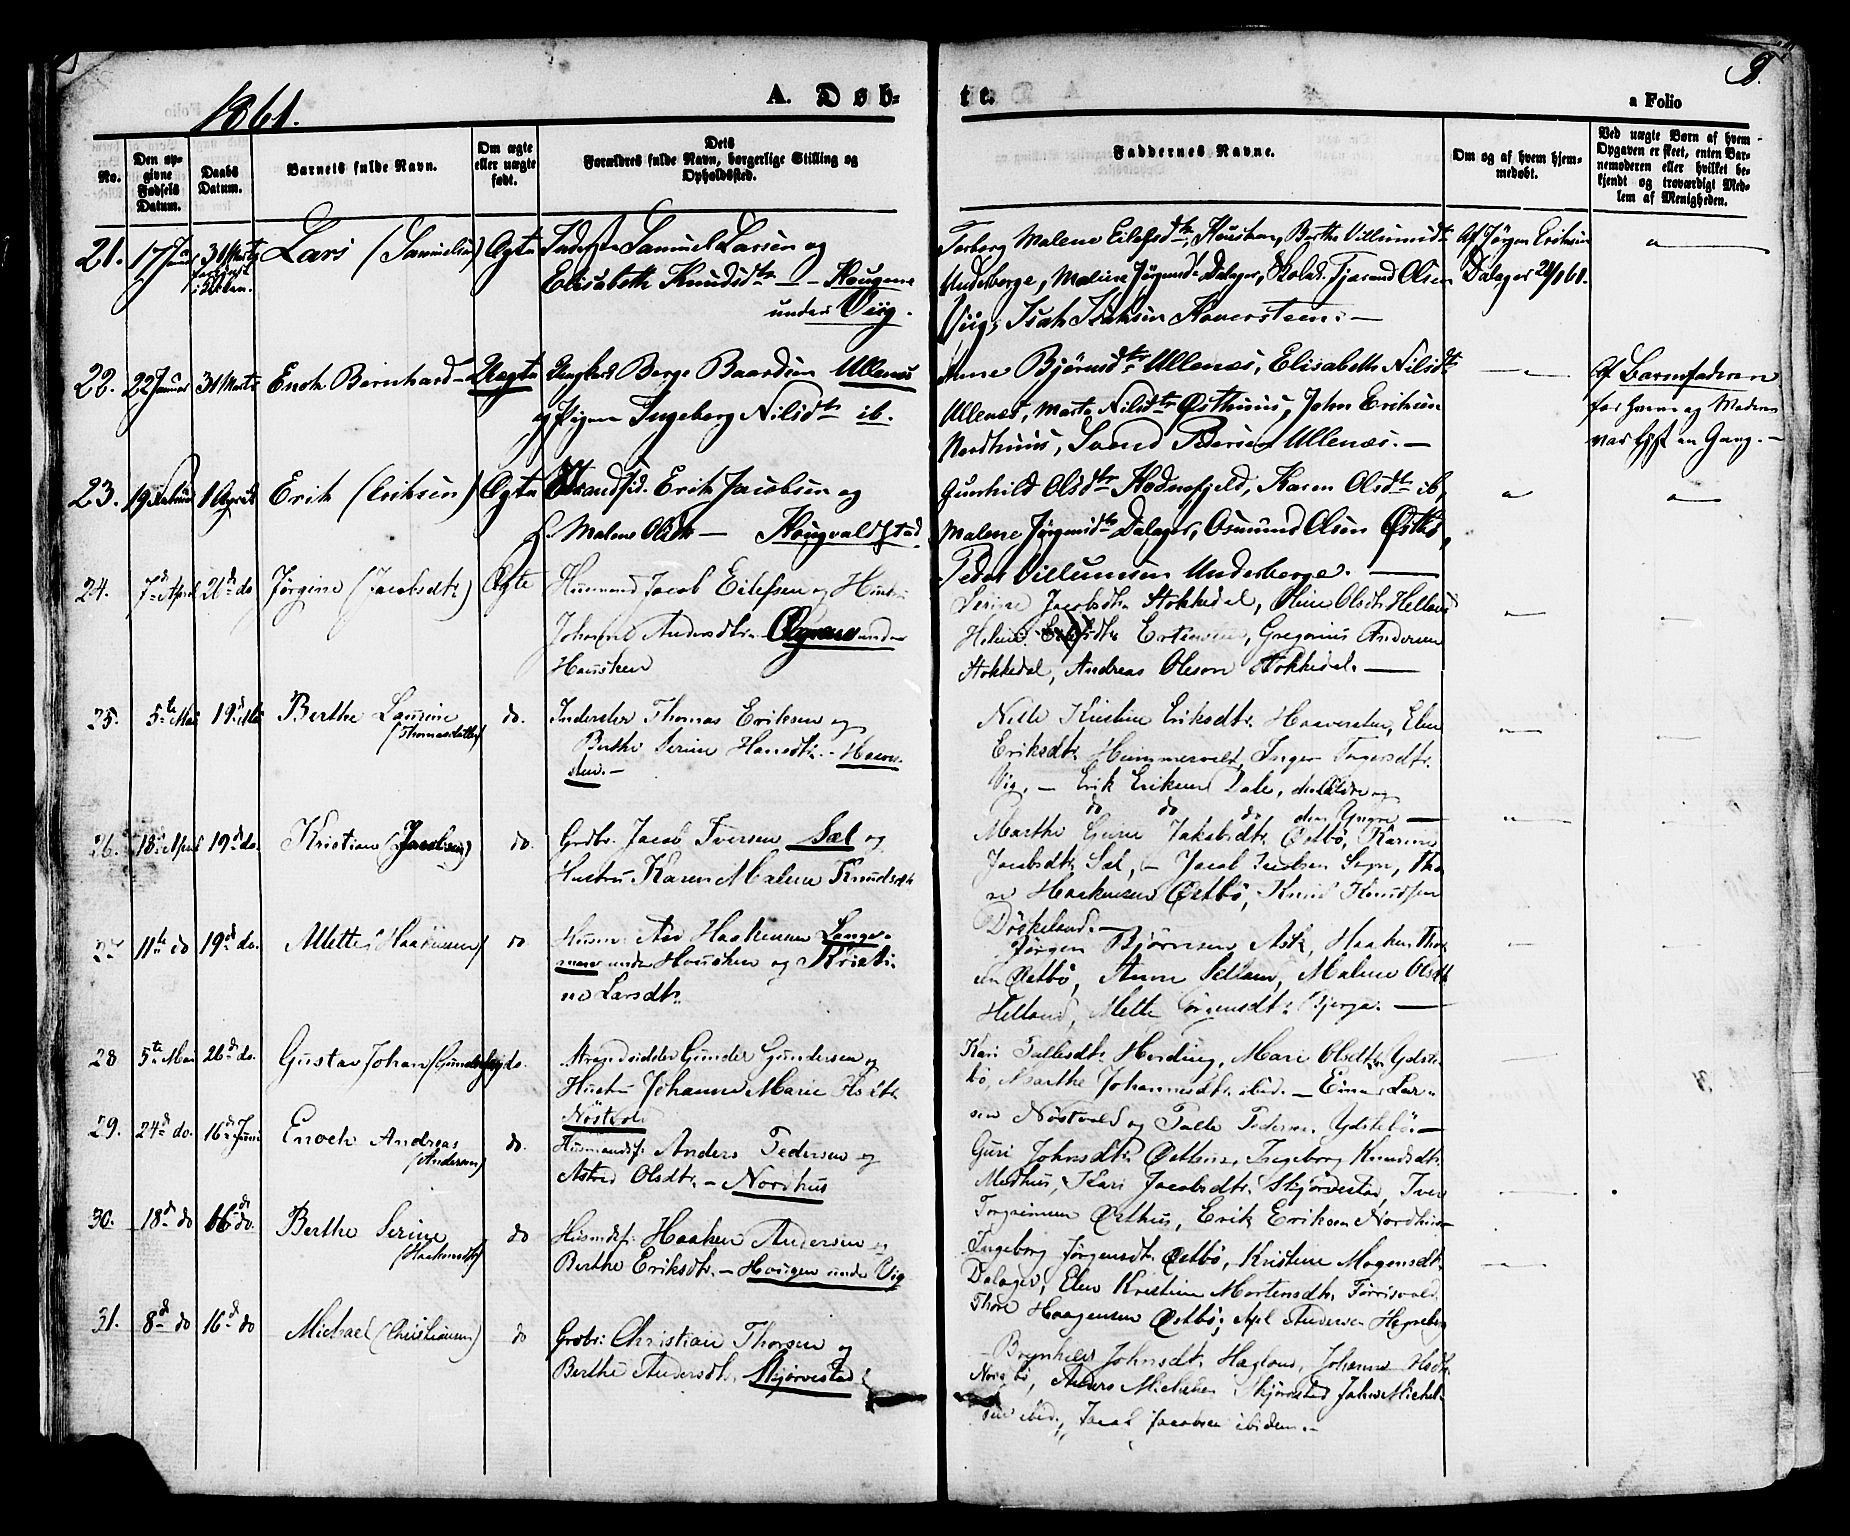 1861.
A. Døb-
te.
8.
a Folio
No.
Den op-
givne
Fødsels
Datum.
Daabs
Datum.
Barnets fulde Navn.
Om ægte
eller uægte
født.
Dets
Forældres fulde Navn, borgerlige Stilling og
Opholdssted.
Faddernes Navne.
Om og af hvem hjem-
medøbt.
Ved uægte Børn af hvem
Opgaven er skeet, enten Bar-
nemoderen eller hvilket be-
kjendt og troværdigt Med-
lem af Menigheden.
21. 17 Jan 31 Marts Lars (Samuelsen) Ægte Samuel Larsen og
Elisabeth Knudsdtr - Hougene
under Viig.
Malene Eilefsdtr Housken, Berthe Villumsdtr
Underberge, Malene Jørgensdtr Dalager, Tjerand Olsen
Viig, Isak Isaksen Haversteen. -
Af Jørgen Eriksen
Dalager
22. 22 Januar 31 Marts Enok Bernhard - Uægte Ungkarl Berge Baardsen Ullenæs
og Pigen Ingeborg Nilsdtr ib.
Anne Bjørnsdtr Ullenæs, Elisabeth Nilsdtr
Ullenæs, Marta Nilsdtr Østhuus, John Eriksen
Nordhuus, Svend Pedersen Ullenæs. -
Af Barnefaderen
for hvem og Moderen
var lyst en Gang. -
23. 19 1 April Erik (Eriksen) Ægte Strandsid. Erik Jacobsen og
Malene Olsdtr - Hougvaldstad
Gunhild Olsdtr Hodnefjeld, Karen Olsdtr ib,
Malene Jørgensdtr Dalager, Osmund Olsen
Peder Villumsen Underberge. -
24. 7de April 21de do Jørgine (Jacobsdtr) Ægte Husmand Jacob Eilefsen og Hustru
Johanne Andersdtr. Øyrene under
Housken
Serine Jacobsdtr Stokkedal, Oline Olsdtr Helland
Gregorius Andersen
Stokkedal, Andreas Olsen Stokkedal. -
25. 5te Mai 19de Mai Berthe Laurine
(Thomasdatter) do. Inderster Thomas Eriksen og
Berthe Serine Hansdtr. - Haaver-
sten. -
Nille Kirstine Eriksdtr. Haaversten, Elen
Eriksdtr. Hummervold, Inger Torgersdtr.
Vig. - Erik Eriksen Dale, den Ældre og
do do do den Yngre -
26. 18de April 19de do. Kristian (Jacobsen) do. Grdbr. Jacob Iversen Sæl og
Hustru Karen Malene Knudsdtr
Marthe Serine Jakobsdtr. Østbø, Karine
Jacobsdtr. Sæl, - Jacob Jacobsen Sogn, Tho-
re Haakensen Østbø, Knud Knudsen
Døskeland. -
27 11te do 19de do. Mette (Haakensen) do Husm. Haakensen Lange-
under Housken og Kristi-
ne Larsdtr.
Jørgen Bjørnsen Ask, Haaken Thor-
sen Østbø, Anne Helland, Malene Olsdtr
Helland, Mette Jørgensdtr. Bjerga. -
28 5te Mai 26de do. Gustav Johan (Gundersen) do. Strandsidder Gunder Gundersen og
Hustru Johanne Marie
Nøstvold
Kari Tollesdtr. Marie Olsdtr Ydste-
bø, Marthe Johannesdtr. ibid. - Einar Lar-
sen Nøstvold og Tolle Pedersen Ydstebø. -
29. 24de do. 16de Juni Enoch Andreas
(Andersen) do. Husmandsf. Anders Pedersen og
Astrid Olsdtr. - Nordhus
Guri Johnsdtr. Østhus, Ingeborg Knudsdtr.
Medhus, Kari Jacobsdtr. Skjørvestad, Iver
Torgrimsen Østhus, Erik Eriksen Nordhus -
30. 18de do 16de do. Berthe Serine
(Haakensdtr) do Husmdsf. Haaken Andersen og
Berthe Eriksdtr. - Hougen under Vig
Ingeborg Jørgensdtr. Østbø, Kristine Mogensdtr.
Dalager, Elen Kristine Mortensdtr. Førrisvold
Thore Haagensen Østbø, Andersen
31. 8de do 16de do Michael (Christiansen) do Grdbr. Christian Thorsen og
Berthe Andersdtr. Skjørvestad
- Brynhild Johnsdtr. Hagland, Johanne
Anders Michelsen Skjørvestad John Michel-
sen ibid., Jacob Jacobsen ibidem. -